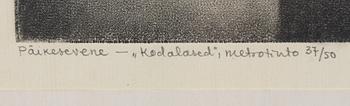 Päikesevene — „Kodalased", metrotinto 37/50